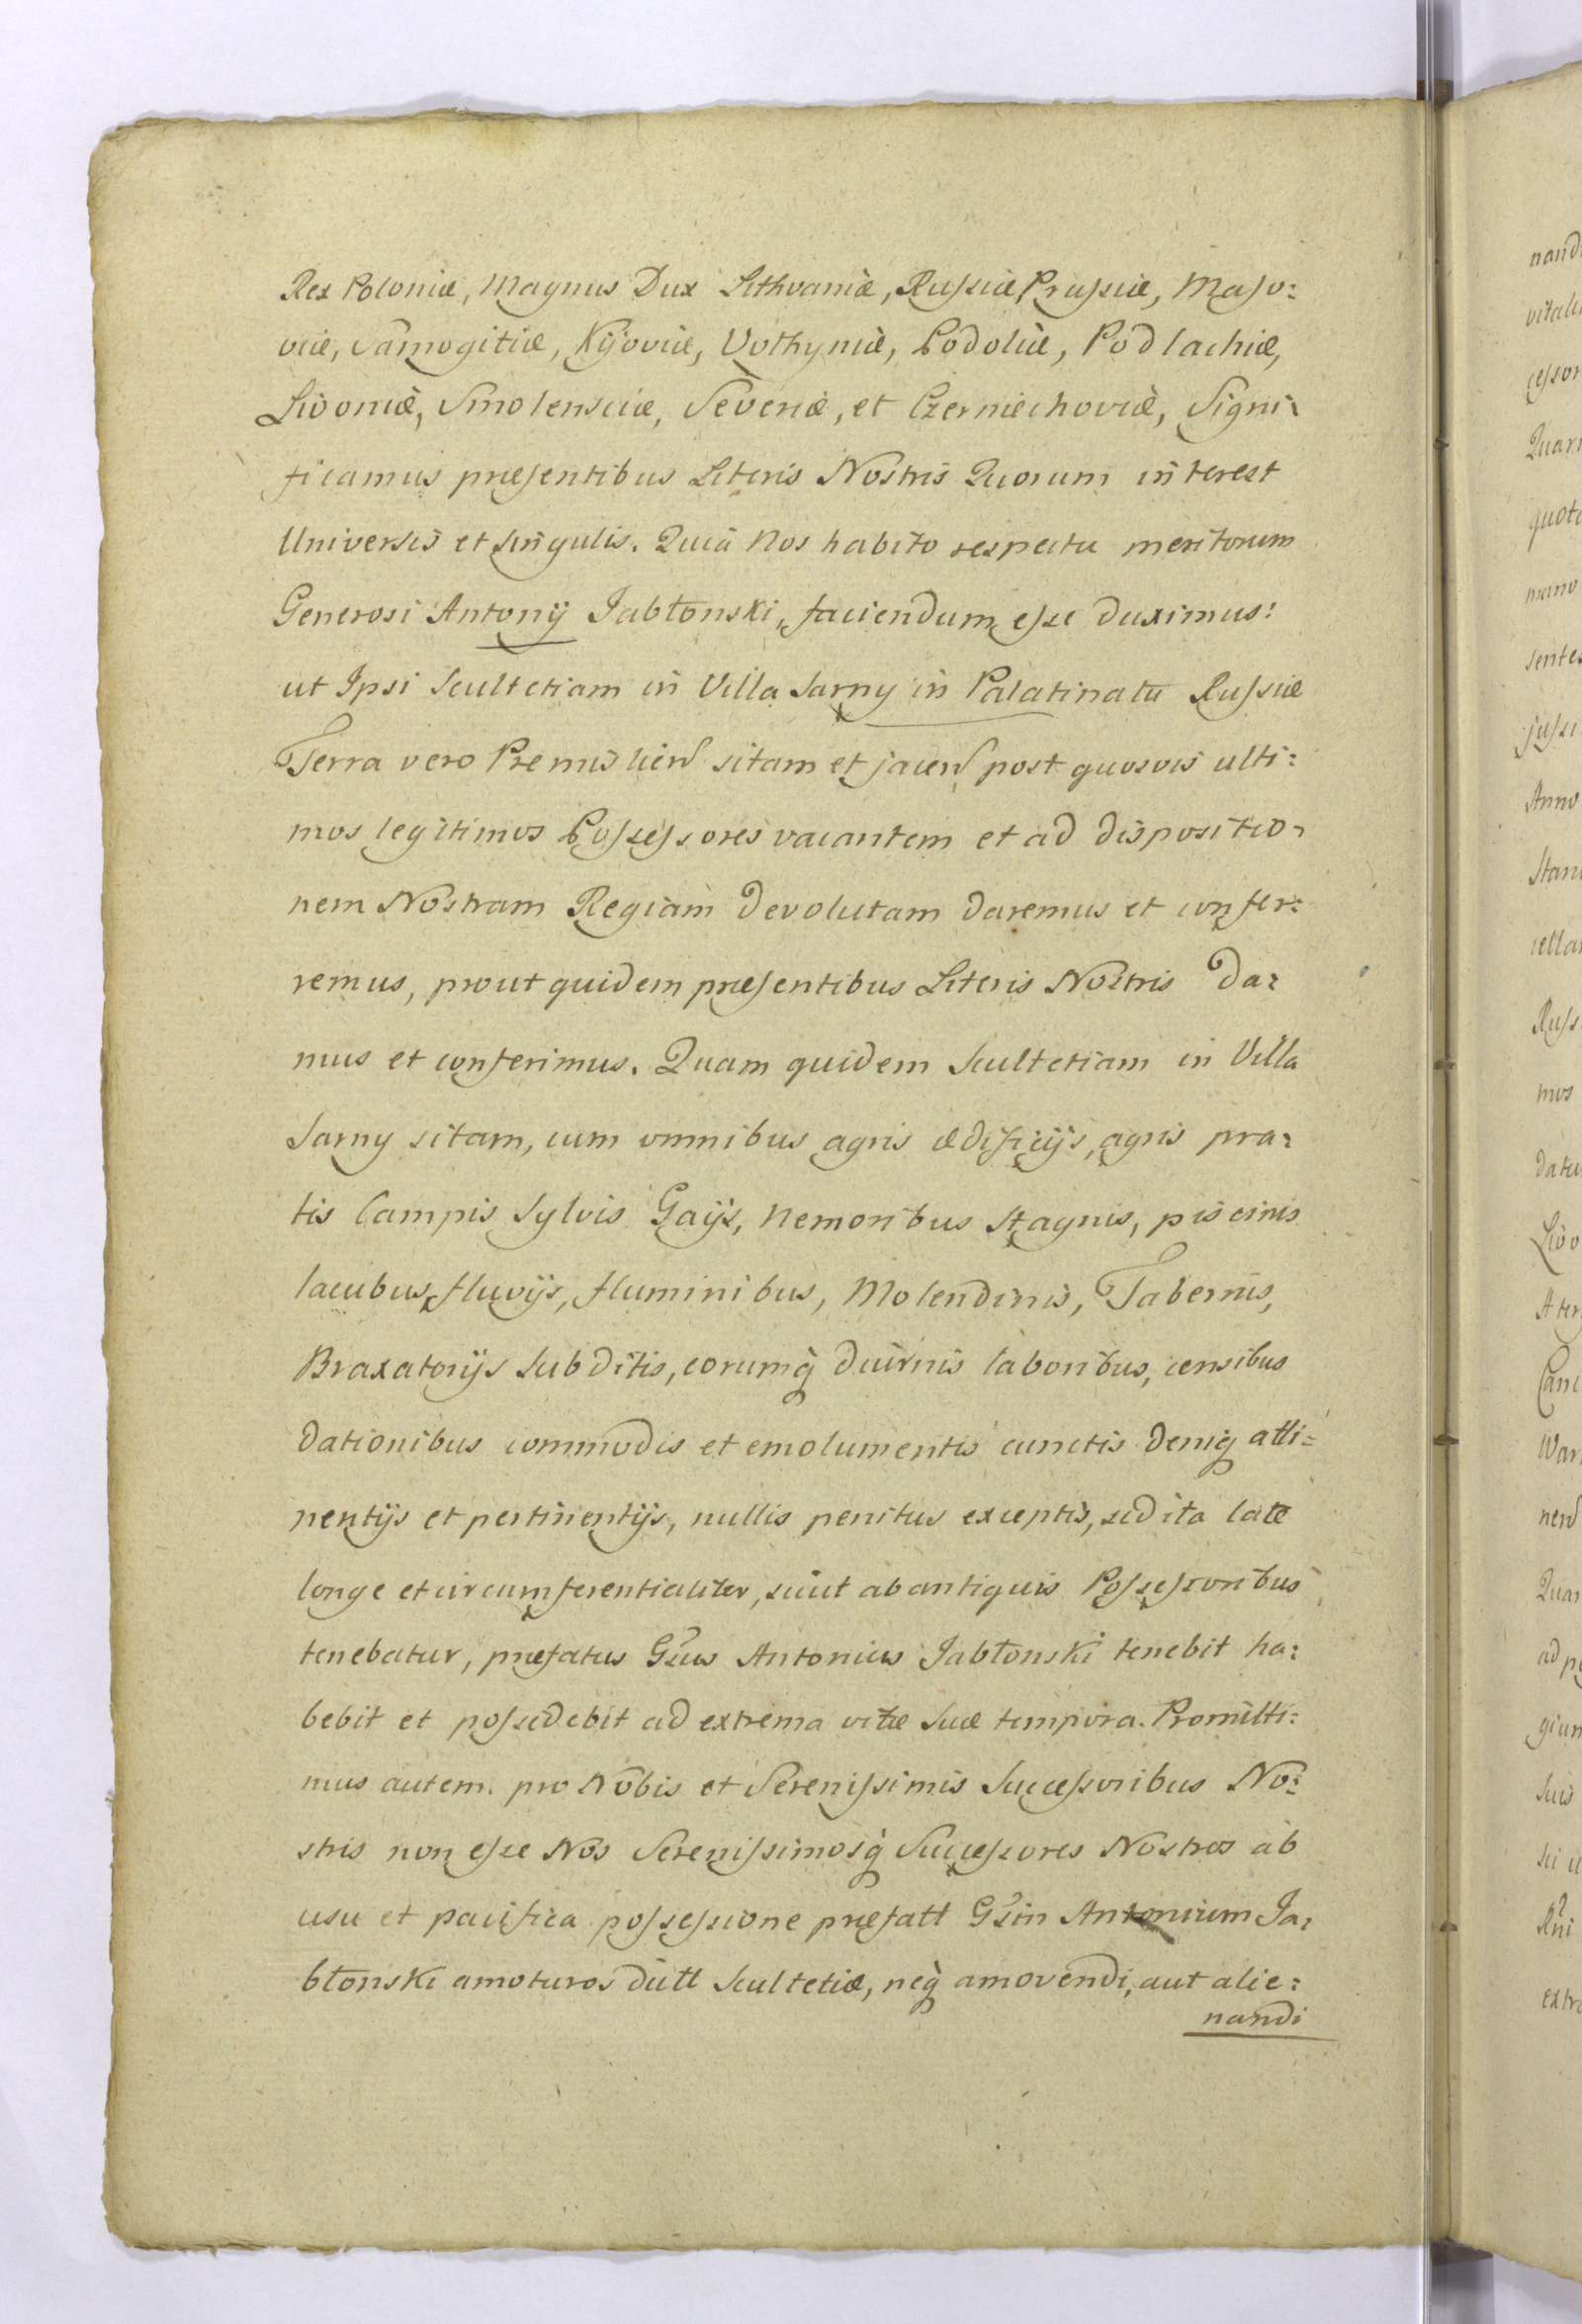 Rex Poloniæ, Magnus Dux Lithvaniæ, Russiæ Prussiæ, Maso:
viæ, Samogitiæ, Kÿoviæ, Volhyniæ, Podoliæ, Podlachiæ,
Livoniæ, Smolensciæ, Severiæ, et Czerniechoviæ, Signi:
ficamus præsentibus Literis Nostris Quorum interest
Universis et singulis. Quia Nos habito respectu meritorum
Generosi Antonÿ Jabłonski, faciendum esse duximus:
ut Ipsi Scultetiam in Villa Sarny in Palatinatu Russiæ
Terra vero Premislien sitam et jacen post quosvis ulti:
mos legitimos Possessores vacantem et ad dispositio:
nem Nostram Regiam devolutam daremus et confer:
remus, prout quidem præsentibus Literis Nostris da:
mus et conferimus. Quam quidem Scultetiam in Villa
Sarny sitam, cum omnibus agris ædificÿs, agris pra:
tis Campis Sylvis Gaÿs, Nemoribus Stagnis, piscinis
lacubus, fluvÿs, fluminibus, Molendinis, Tabernis,
Braxatorÿs Subditis, eorumq̀ diurnis laboribus, censibus
dationibus commodis et emolumentis cunctis deniq̀ atti=
nentÿs et pertinentÿs, nullis penitus exceptis, sed ita late
longe et circumferentialiter, sicut ab antiquis Possessoribus
tenebatur, præfatus Gsus Antonius Jabłonski tenebit ha:
bebit et possedebit ad extrema vitæ Suæ tempora. Promitti:
mus autem. pro Nobis et Serenissimis Successoribus No:
stris non esse Nos Serenissimosq̀ Successores Nostros ab
usu et pacifica possessione præfatt Gsin Antonium Ja:
błonski amoturos dictt Scultetiæ, neq̀ amovendi, aut alie:
nandi
nand
vitali
cessor
Quar
quot
mano
sentes
jussi
Anno
Stan
cella
Russ
mos
datu
Livo
Ater
Canc
War
nen
Quar
ad p
giun
Suis
Rni
extr